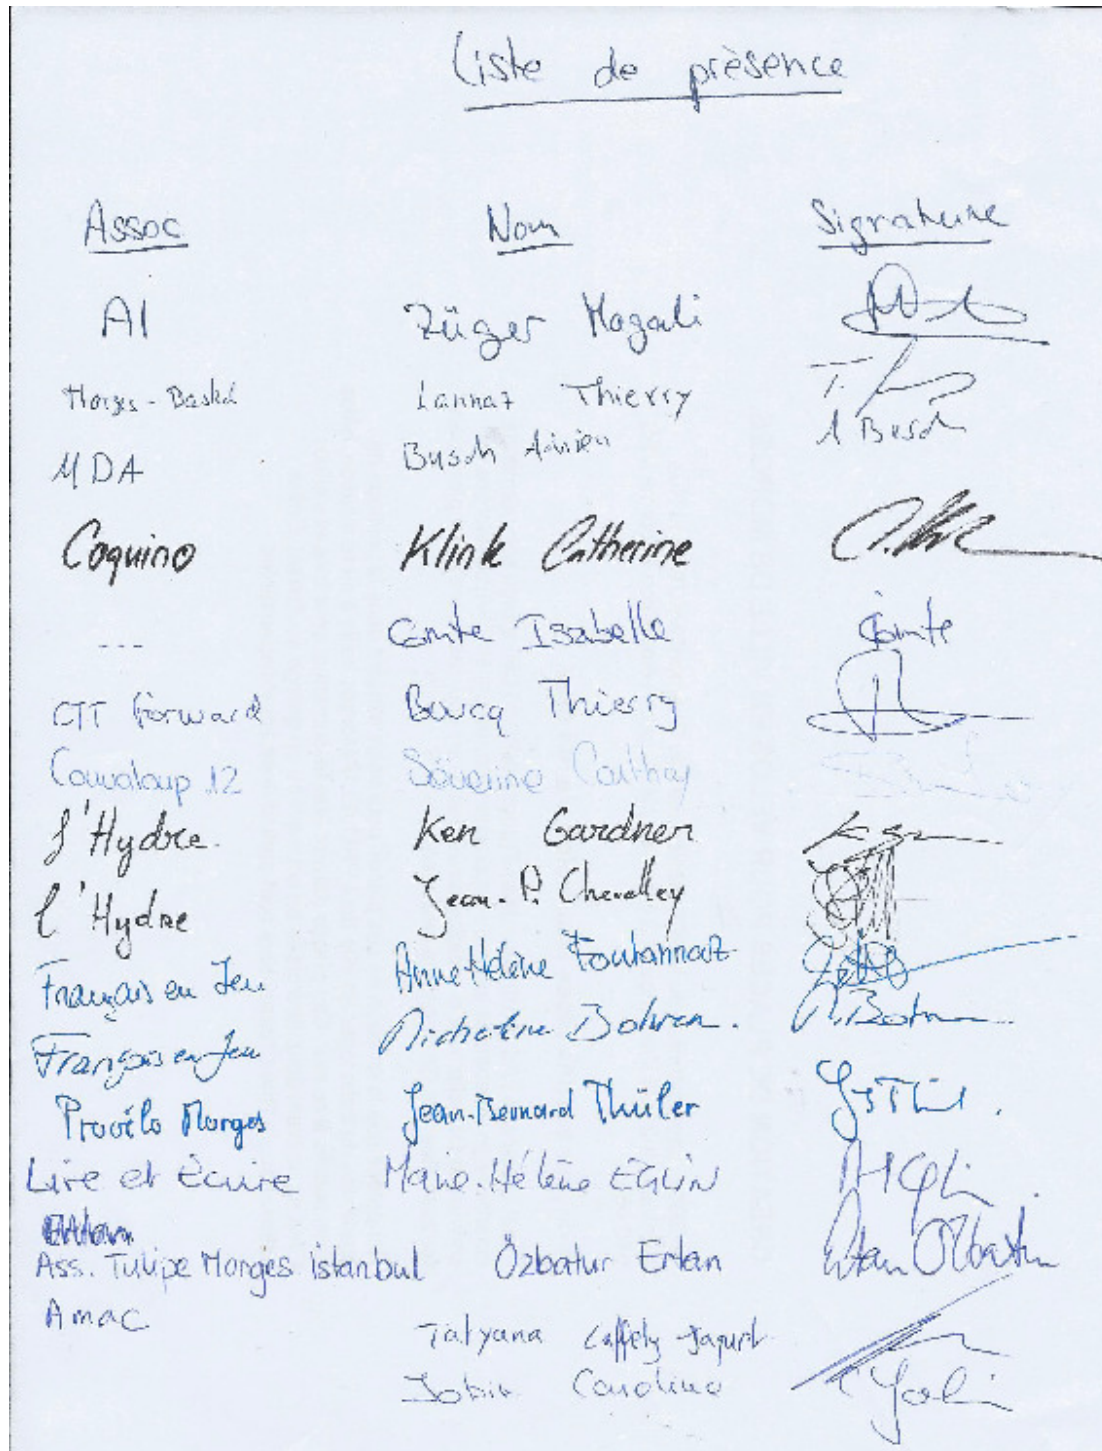 Liste de présence
Assoc Nom Signature
AI Züger Magali
Morges - Basket Lannaz Thierry T.
MDA Busch Adrien A Busch
Coquino Klink Catherine
--- Comte Isabelle Comte
CTT Forward Bourq Thierry
Couvaloup 12 Séverine
l'Hydre. Ken Gardner
l'Hydre Jean-P. Chevalley
Français en Jeu Anne Hélène Foutannaz
Français en Jeu Micheline Bohren.
Provélo Morges Jean-Bernard Thüler
Lire et Écrire Marie-Hélène EGLIN
Ass. Tulipe Morges istanbul Özbatur Ertan Ertan Özbatur
Amac
Tatyana
Jobin Caroline